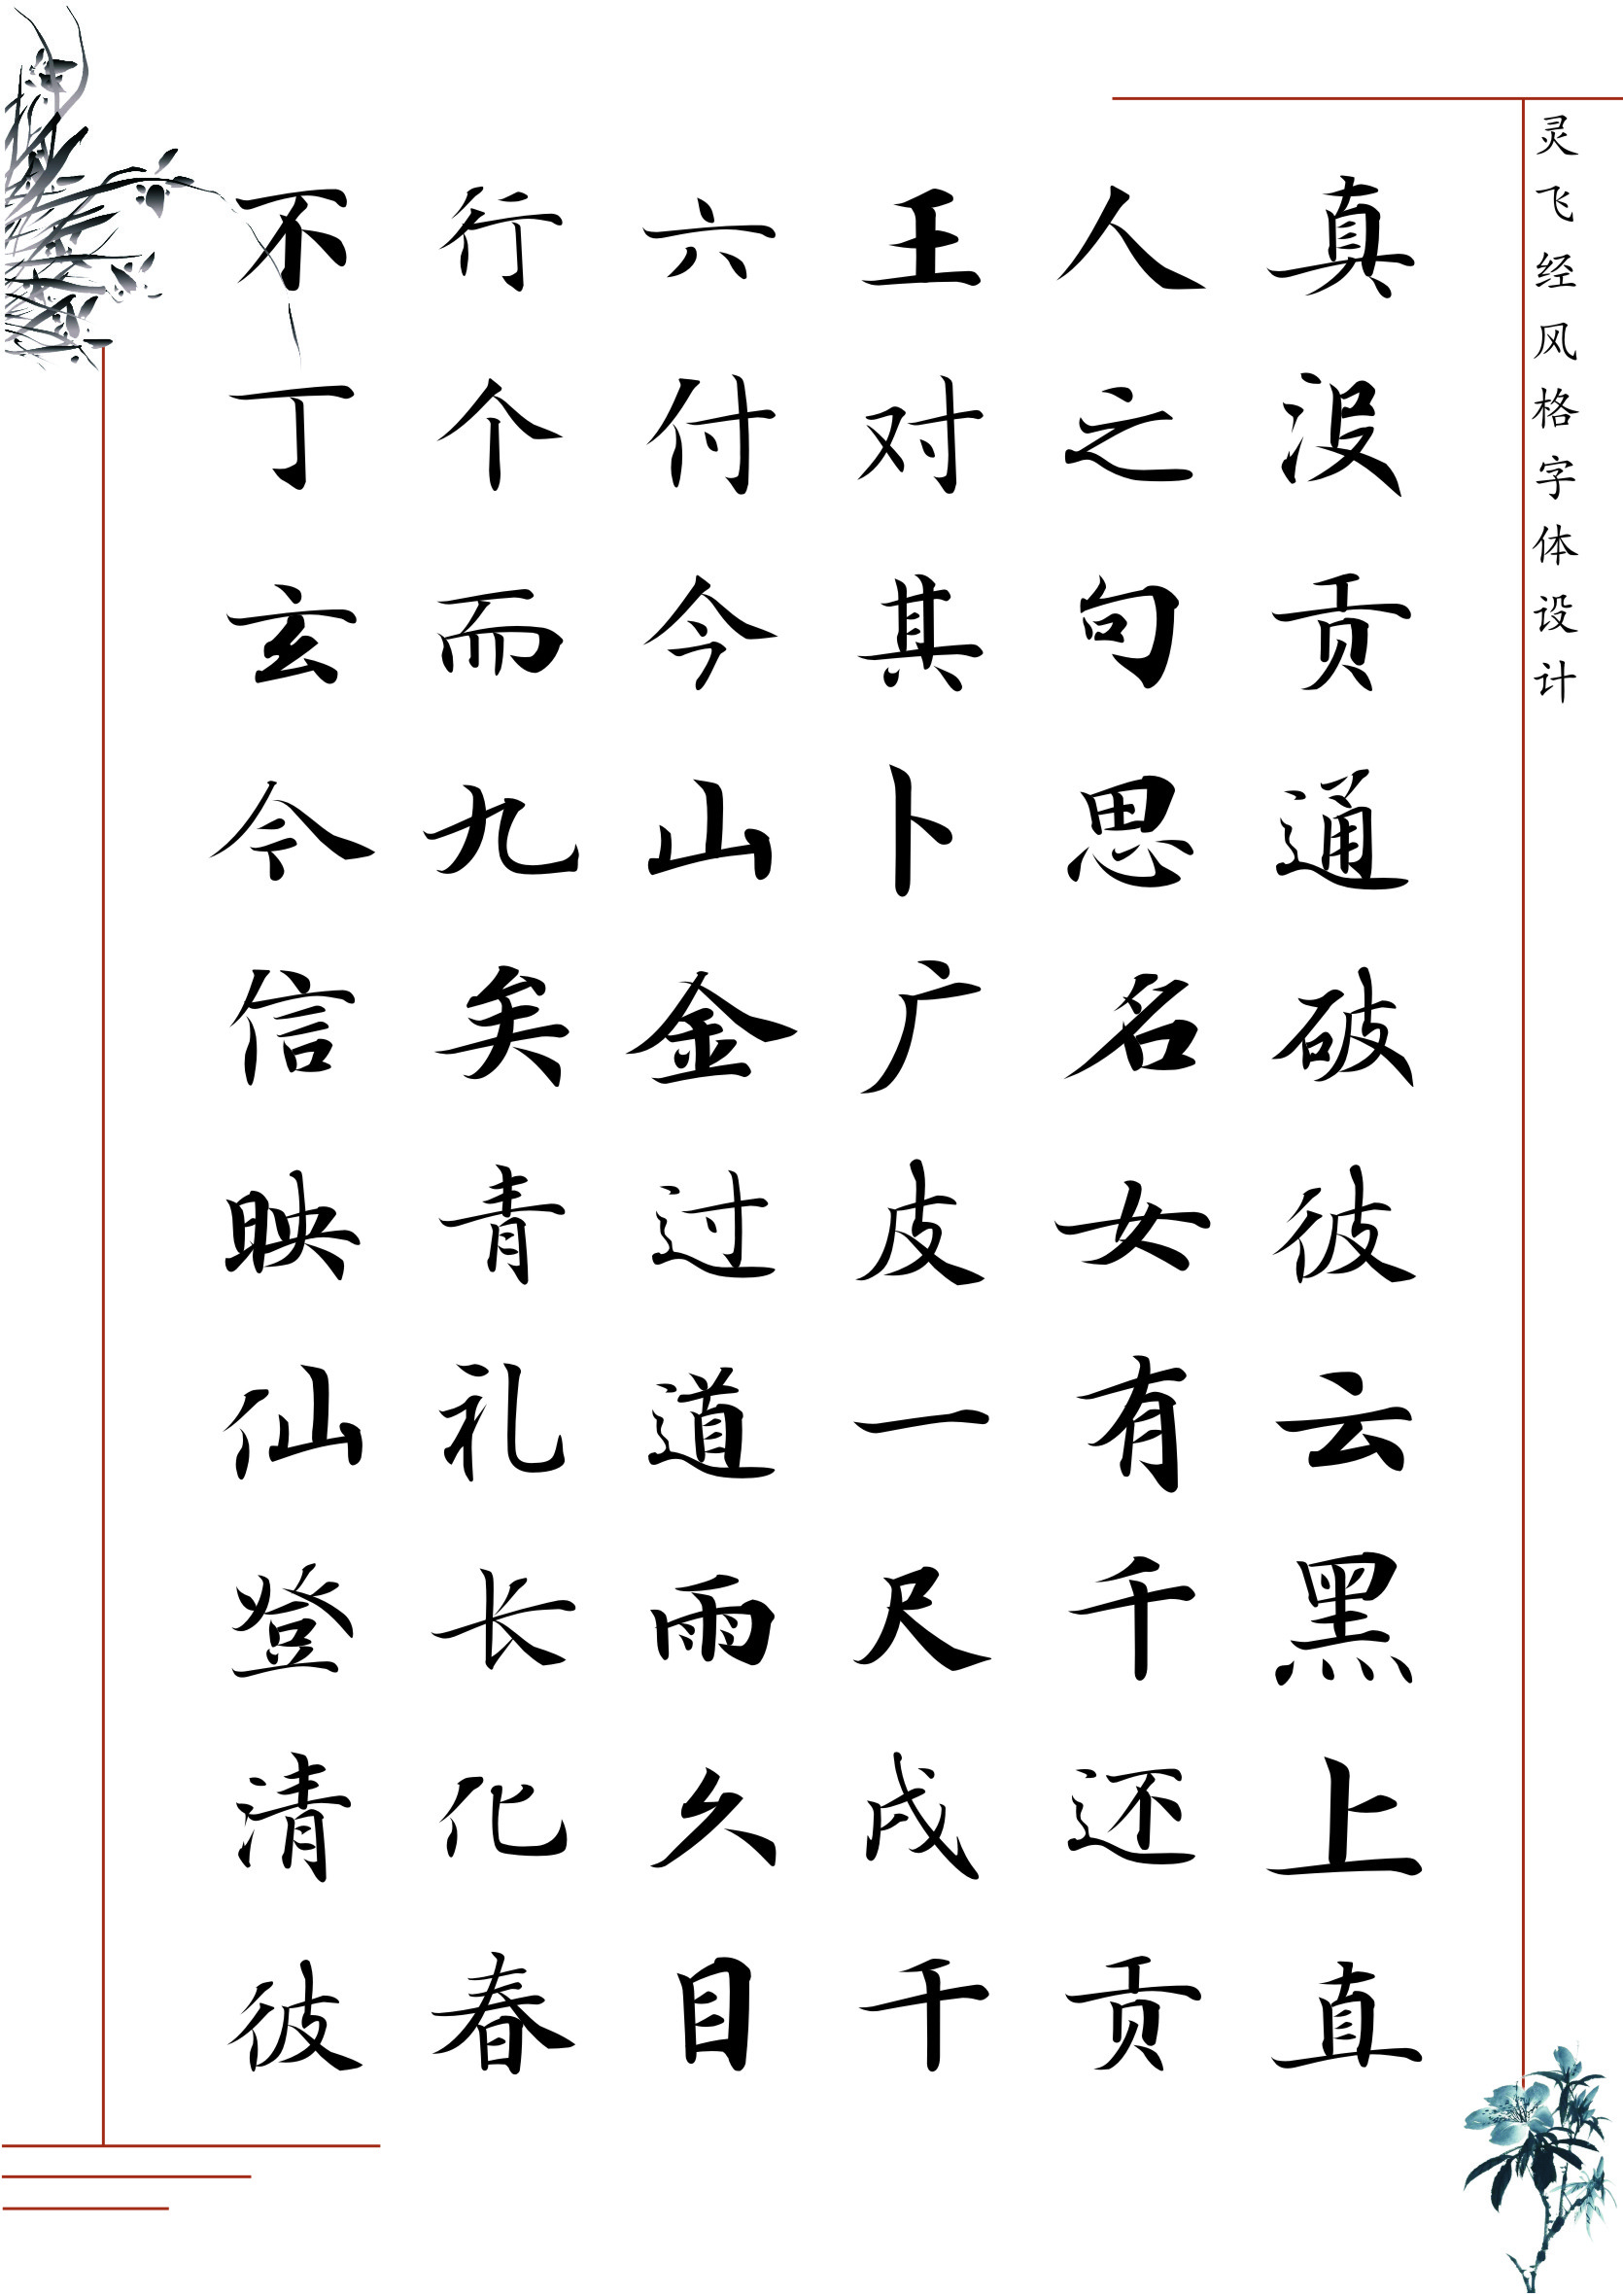 灵飞经风格字体设计
真没贡通破彼云黑上直
人之句思名女有千还贡
王对其卜广皮一尺戌干
六付今山金过道雨久目
行个而九矣青礼长化春
不丁玄令信映仙登清彼